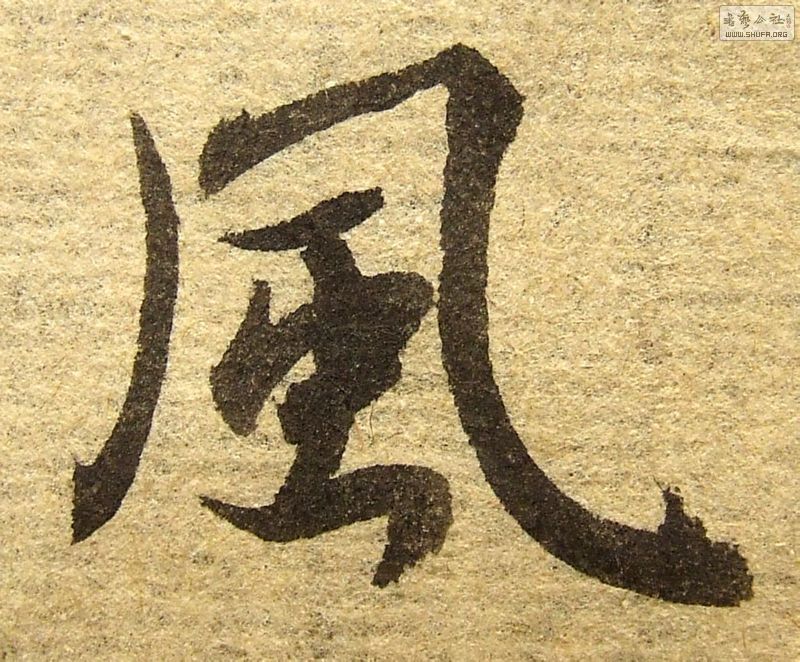 風
書藝公社
WWW.SHUFA.ORG